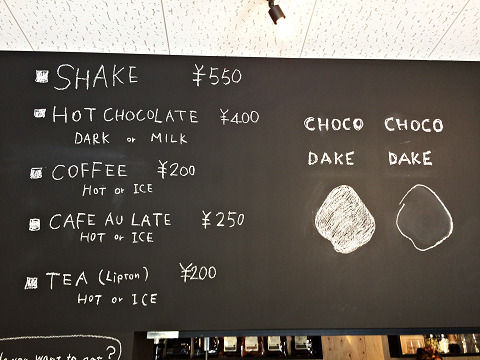 SHAKE ¥550
HOT CHOCOLATE ¥400
DARK or MILK
COFFEE ¥200
HOT or ICE
CAFE AU LATE ¥250
HOT or ICE
TEA (Lipton) ¥200
HOT or ICE
CHOCO CHOCO
DAKE DAKE
you want to eat?